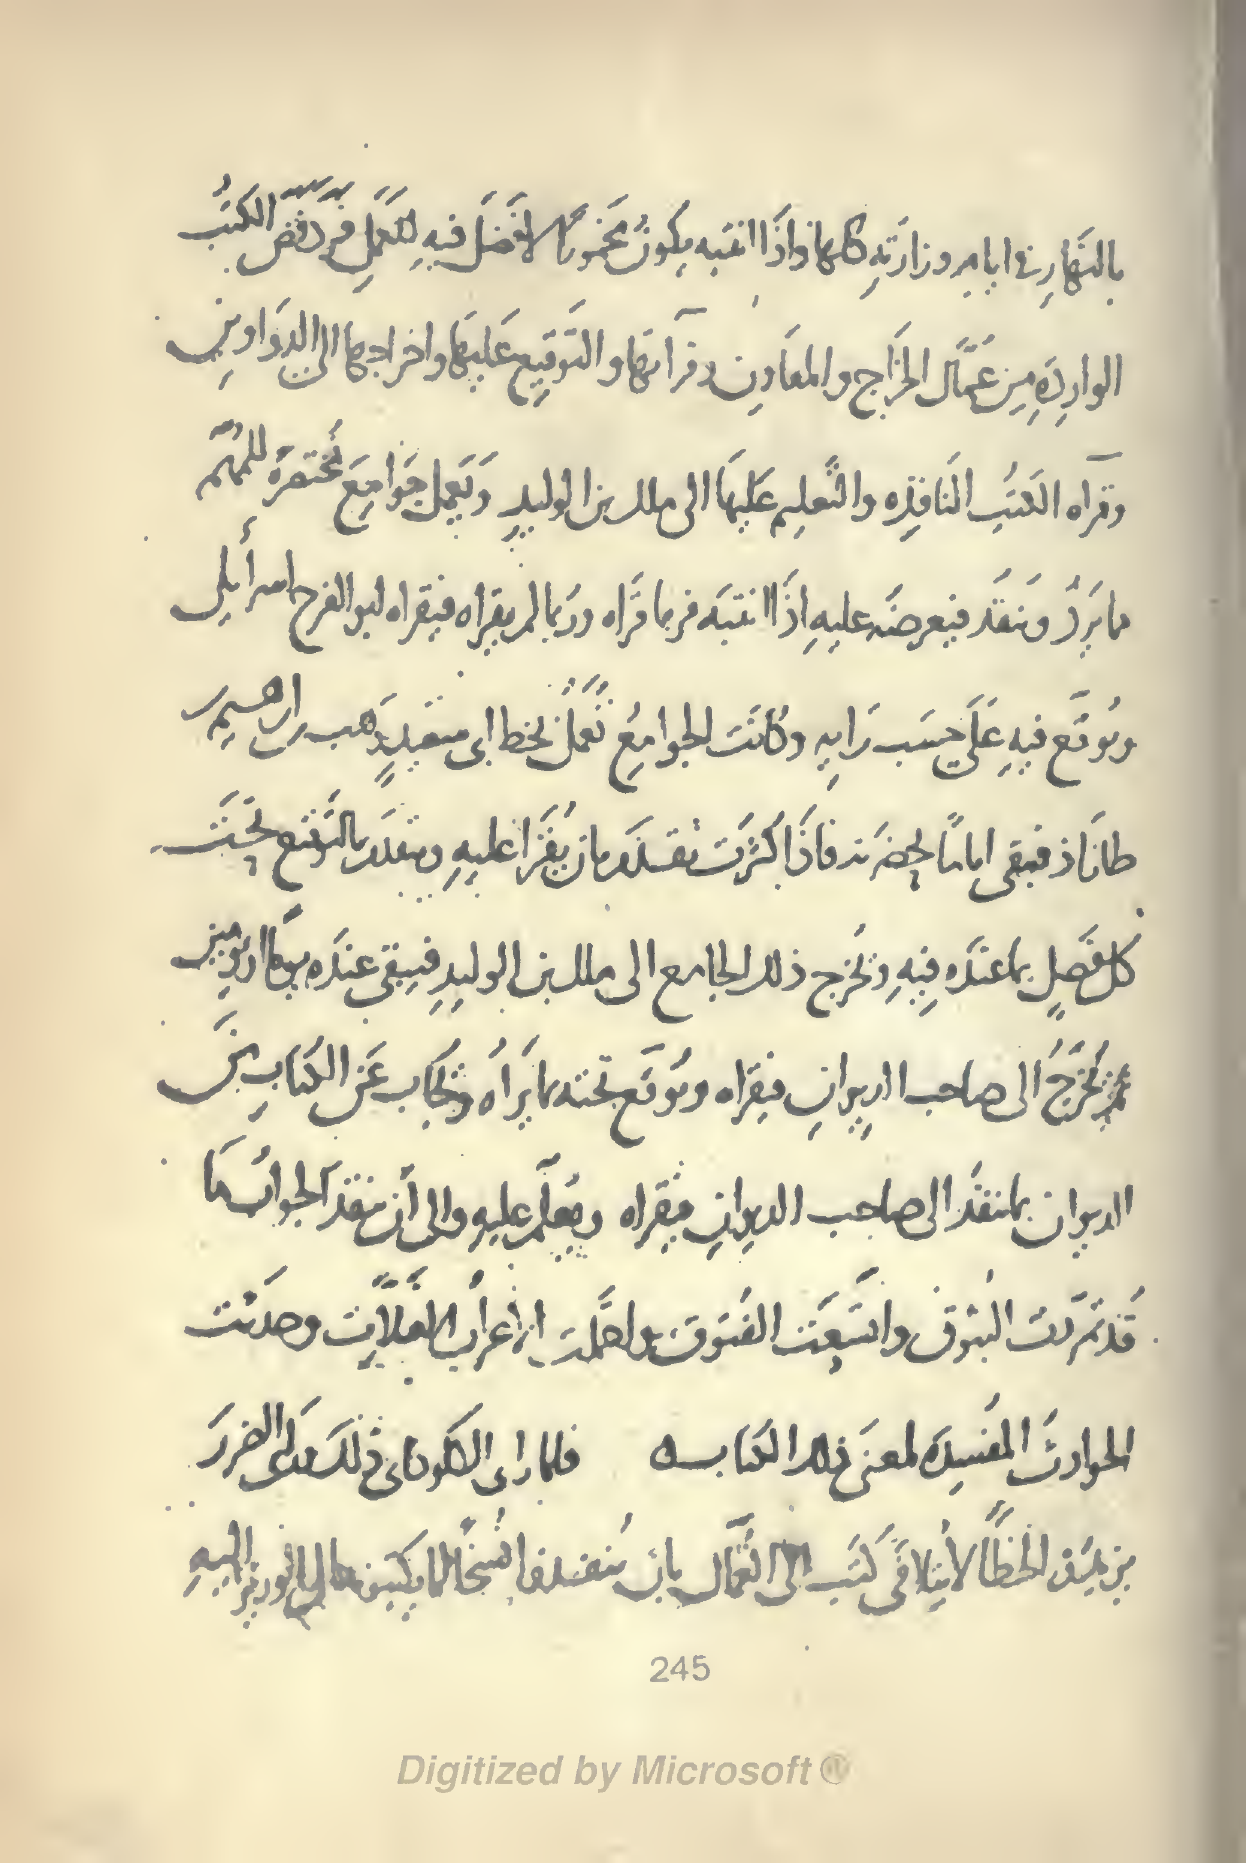 بالنَّهارِ فى ايامِ وزارَتِهِ كلها واذَا انتبه يكونُ مَخمورًا لا فَضلَ فيهِ للعَمَلِ فَرَدَّ فَضَّ الكتب
الوارِدَهِ مِن عُمَّال الخرَاج والمعَاوِن وقرآتها والتَّوقيع عَليهَا واخراجها الى الدوَاوينِ
وقرآه الكتبِ النافِذِه والتَّعليم عَليهَا الى ملك بن الوليدِ وَيَعمل جَوامِعَ مُختصره للمُهِم
مما يَرِدُ وينفَذ فيعرضَه عليهِ اذَا انتبَه فربما قَرَاه وربما لم يقراه فيقراه ابو الفرج اسرائيلى
ويُوقّع فيهِ عَلَى حسَب رَايهِ وكانَت الجوامِعُ تُعمَلُ بخط ابى سعيدِ وَهب بن ابرهيم
طازَاذ فيبقى اياما بحضرَته فاذَا كَثُرَت تقدَم بان يُقرَا عليهِ ويتقدَم بالتَّوقيع تحتَ
كل فَصلٍ بما عندَه فِيهِ ويُخرج ذلك الجامع الى ملك بن الوليدِ فيبقى عندَه يومًا او يومَين
ثم يُخرَجُ الى صاحب الديوانِ فيقراه ويُوقّع تحته بما يَرَاهُ ويُجَاب عَن الكتَابِ مِن
الديوان بما ينفُذ الى صاحب الديوانِ فيقراه ويُعلّم عليهِ والى اَن ينفذ الجوابُ مَا
قد تمَزّقت البثوق واتسَعَت الفتوق واحمَلت الاعرابُ الغَلّات وحدثت
الحوادث المفسِدَه لمعنى ذلك الكتاب ه فلما رأى الكلوذانى ذلك ومَدَى الضررَ
مِن هَذِه الخطّا لا يتلافَى كتَب الى العُمّال بان ينفذوا نُسَخًا لما يكتبون به الى الوزير اليهِ
245
Digitized by Microsoft ®